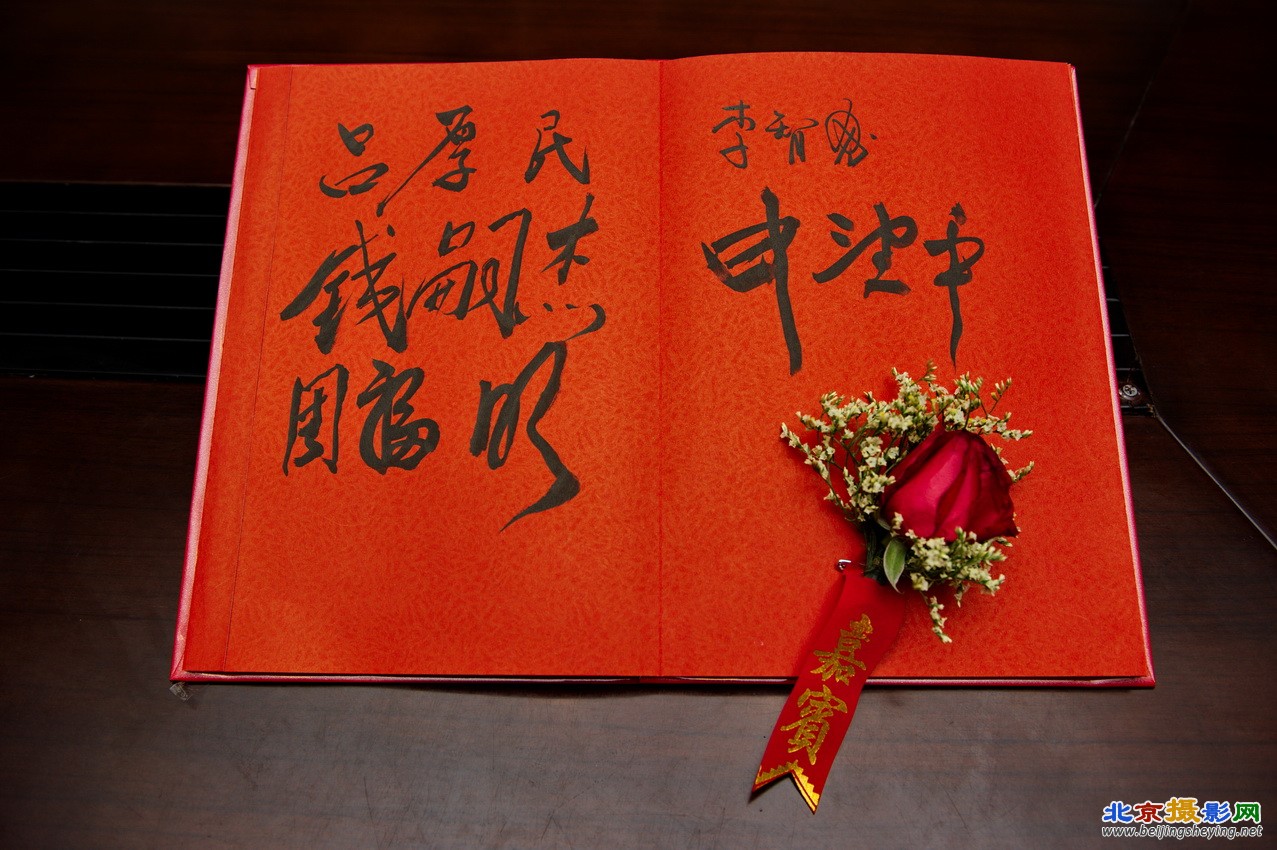 吕厚民
钱嗣杰
周福明
李智
申
嘉宾
北京摄影网
www.beijingsheying.net